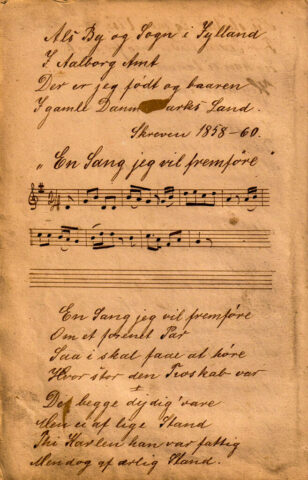 Als By og Sogn i Jylland
I Aalborg Amt
Der er jeg født og baaren
I gamle Danmarks Land.
Skreven 1858-60.
"En Sang jeg vil fremføre"
En Sang jeg vil fremføre
Om et forenet Par
Saa i skal faae at høre
Hvor stor den Troskab var
De begge dejdig' vare
Men ei af lige Stand
Thi Karlen han var fattig
Men dog af ærlig Stand.